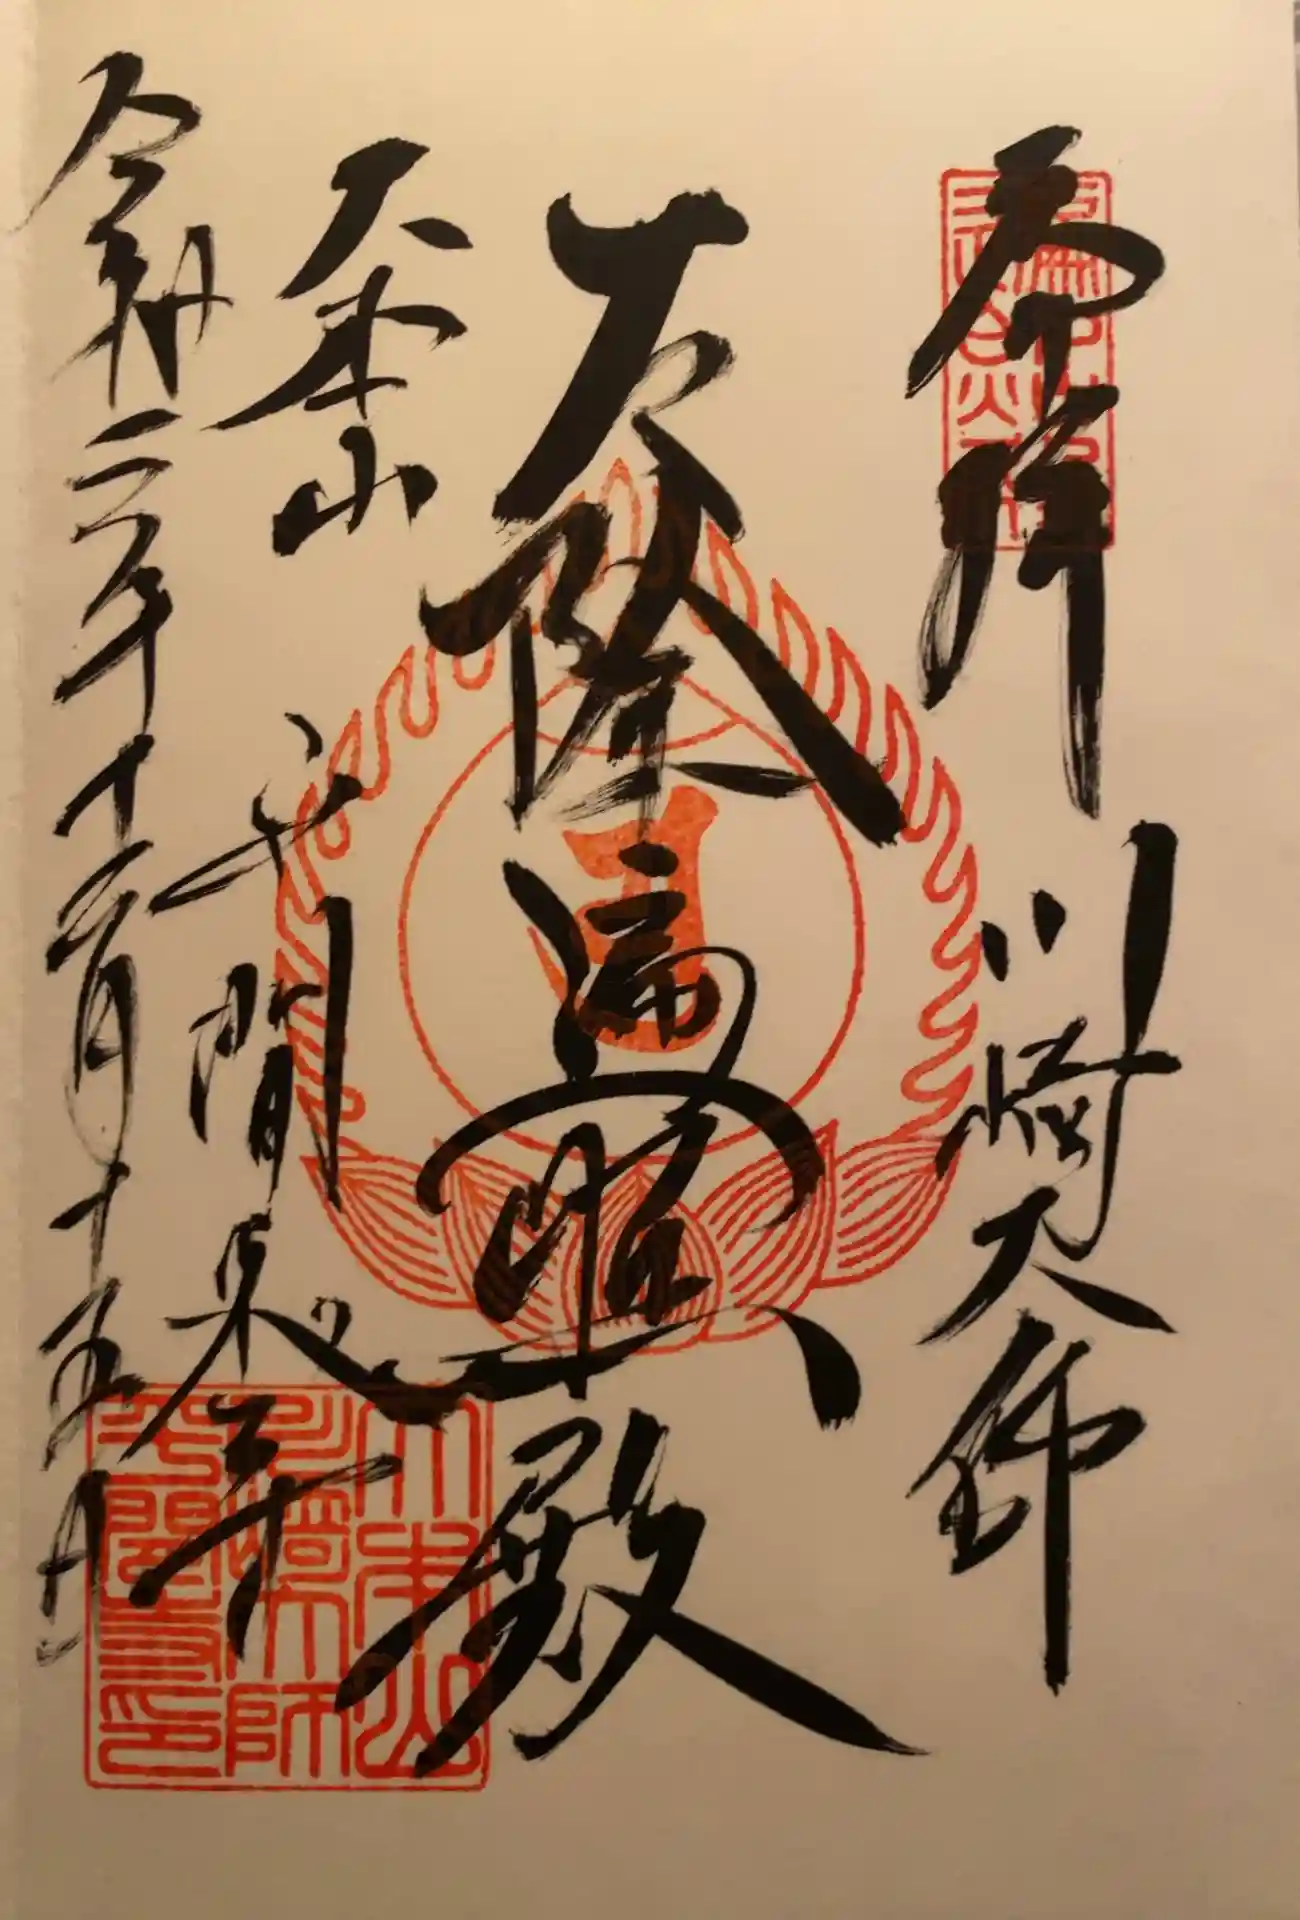 奉拝
川崎大師
厄除遍照殿
大本山
平間寺
令和二年十一月十五日
大本山
川崎大師
平間寺印